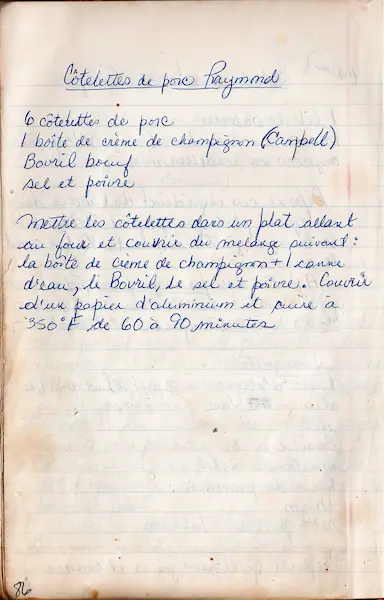 Côtelettes de porc Raymond
6 côtelettes de porc
1 boîte de crème de champignon (Campbell)
Bovril boeuf
sel et poivre
Mettre les côtelettes dans un plat allant
au four et couvrir du melange suivant :
la boîte de crème de champignon + 1 canne
d'eau, le Bovril, le sel et poivre. Couvrir
d'un papier d'aluminium et cuire à
350°F de 60 à 90 minutes
86